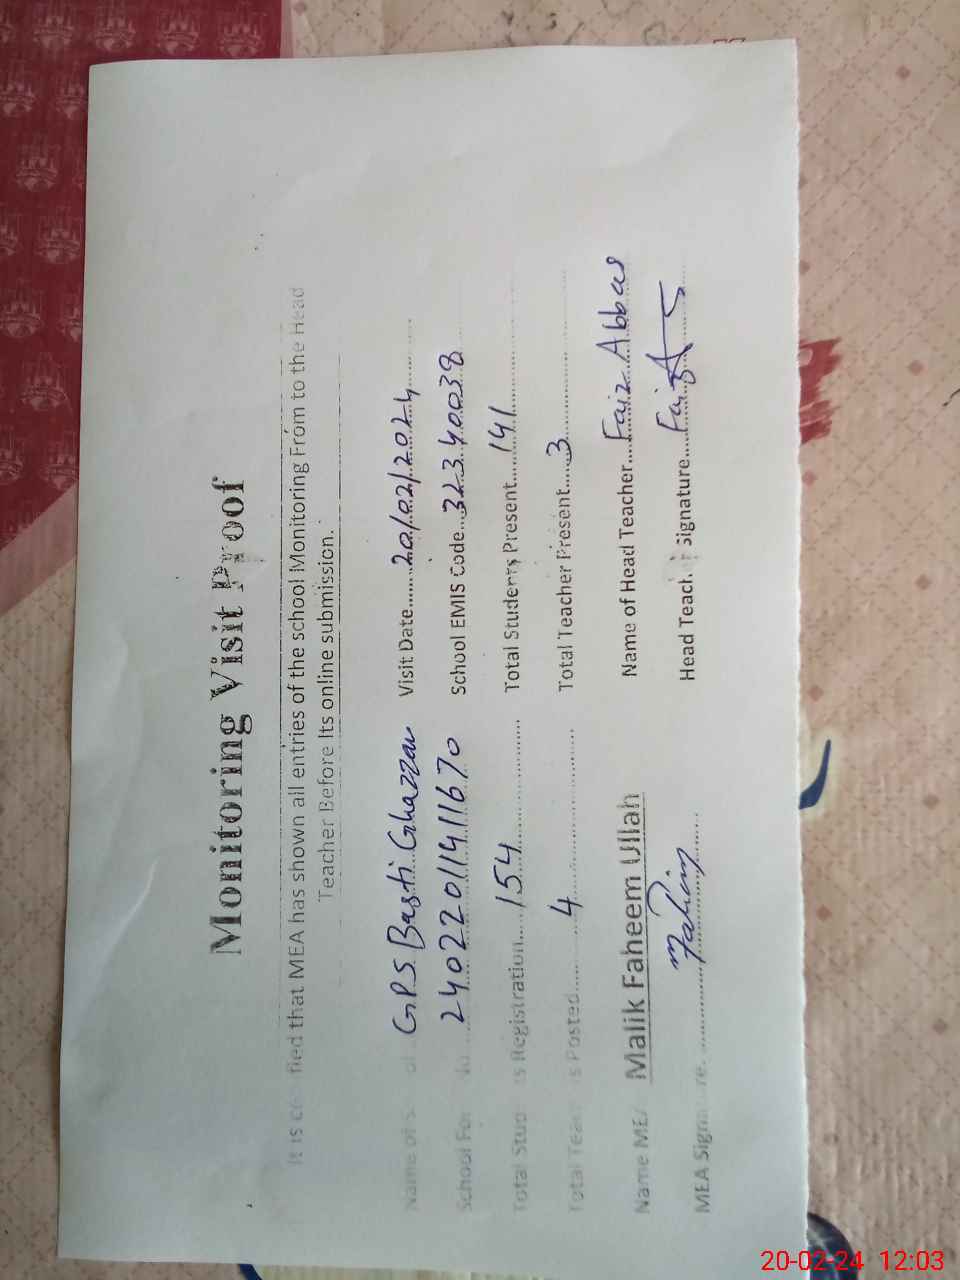 Monitoring Visit Proof
It is certified that MEA has shown all entries of the school Monitoring From to the Head
Teacher Before Its online submission.
Name of School G.P.S Basti Ghazzar Visit Date 20/02/2024
School Form No. 24022011411670 School EMIS Code 32340038
Total Students Registration 154 Total Students Present 141
Total Teachers Posted 4 Total Teacher Present 3
Name MEA Malik Faheem Ullah Name of Head Teacher Faiz Abbas
MEA Signature. Fahim Head Teacher Signature Faiz A
20-02-24 12:03